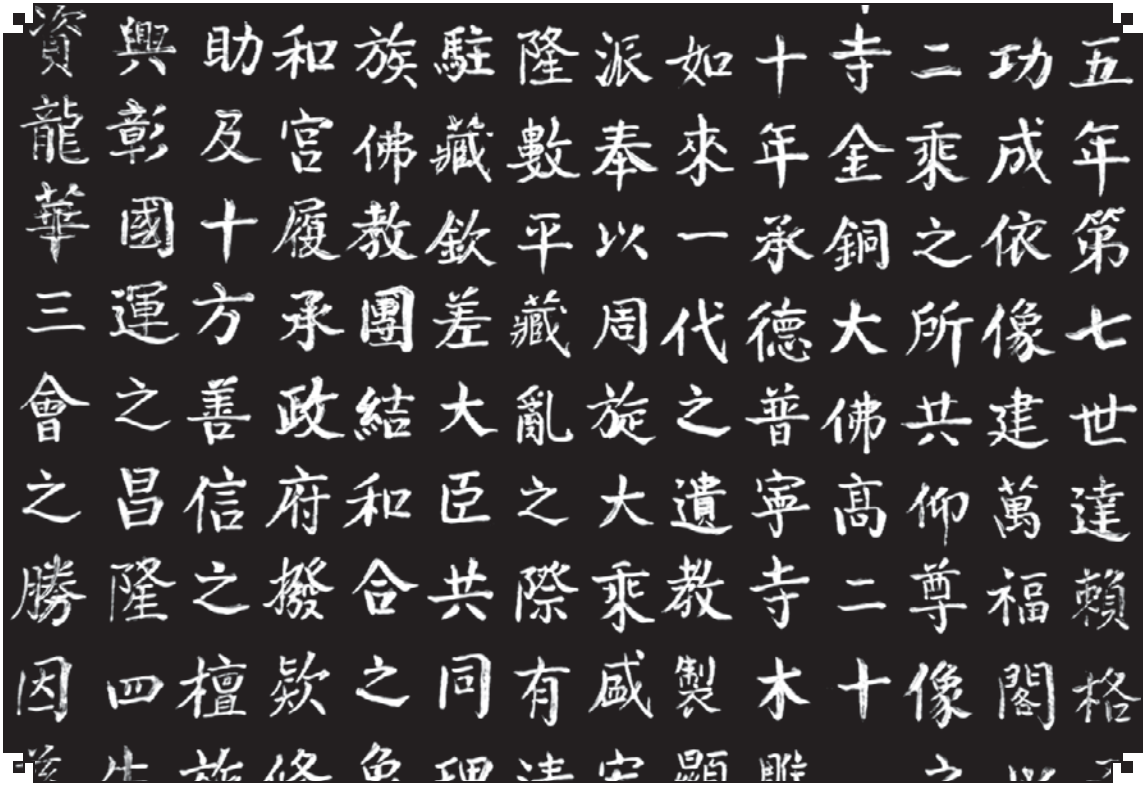 五年第七世達賴格
功成依像建萬福閣
二乘之所共仰尊像之
寺金銅大佛高二十
十年承德普寧寺木雕
如來一代之遺教製顯
派奉以周旋大乘咸
隆數平藏亂之際有清
駐藏欽差大臣共同理
族佛教團結和合之
和宮履承政府撥款修
助及十方善信之檀施
興彰國運之昌隆四
資龍華三會之勝因